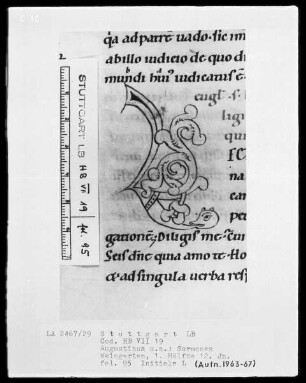 qa ad patrē uado. sic im
ab illo iudicio de quo di
mundi hui' iudicatus ē
eugl̄. s. l
ligi
qua
na
can
pe
gatione; Diligis me; cui
Scis dn̄e qua amo te. Ho
c ad singula uerba res
STUTTGART LB HB VI 19 fol. 95
LA 2467/29 Stuttgart LB
Cod. HB VII 19
Augustinus u.a.: Sermones
Weingarten, 1. Hälfte 12. Jh.
fol. 95 Initiale L (Aufn. 1963-67)